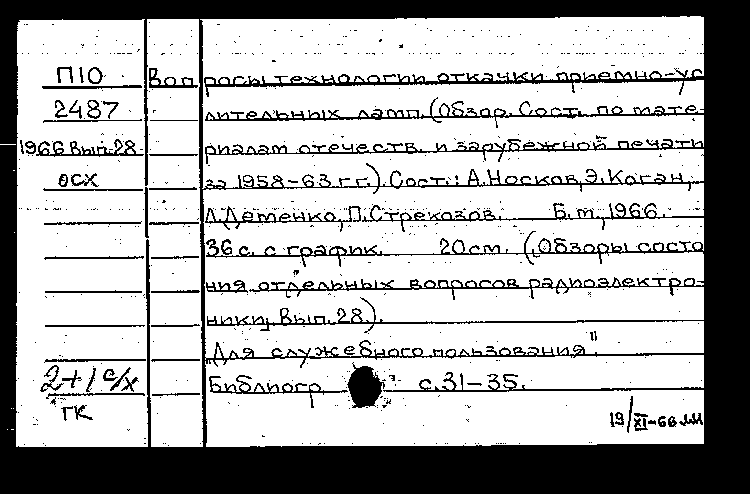 П10 Вопросы технологии откачки приемно-ус
2487 лительных ламп (Обзор. Сост. по мате-
1966 Вып.28 риалам отечеств. и зарубежной печати
осх за 1958-63 г.г.). Сост.: А.Носков, Э.Коган,
Л.Деменко, П.Стрекозов. Б.м., 1966.
36 с. с график. 20 см. (Обзоры состо
ния отдельных вопросов радиоэлектро-
ники, Вып. 28).
„Для служебного пользования".
2+1 с/х Библиогр с.31-35.
ГК
19/XI-66 мм